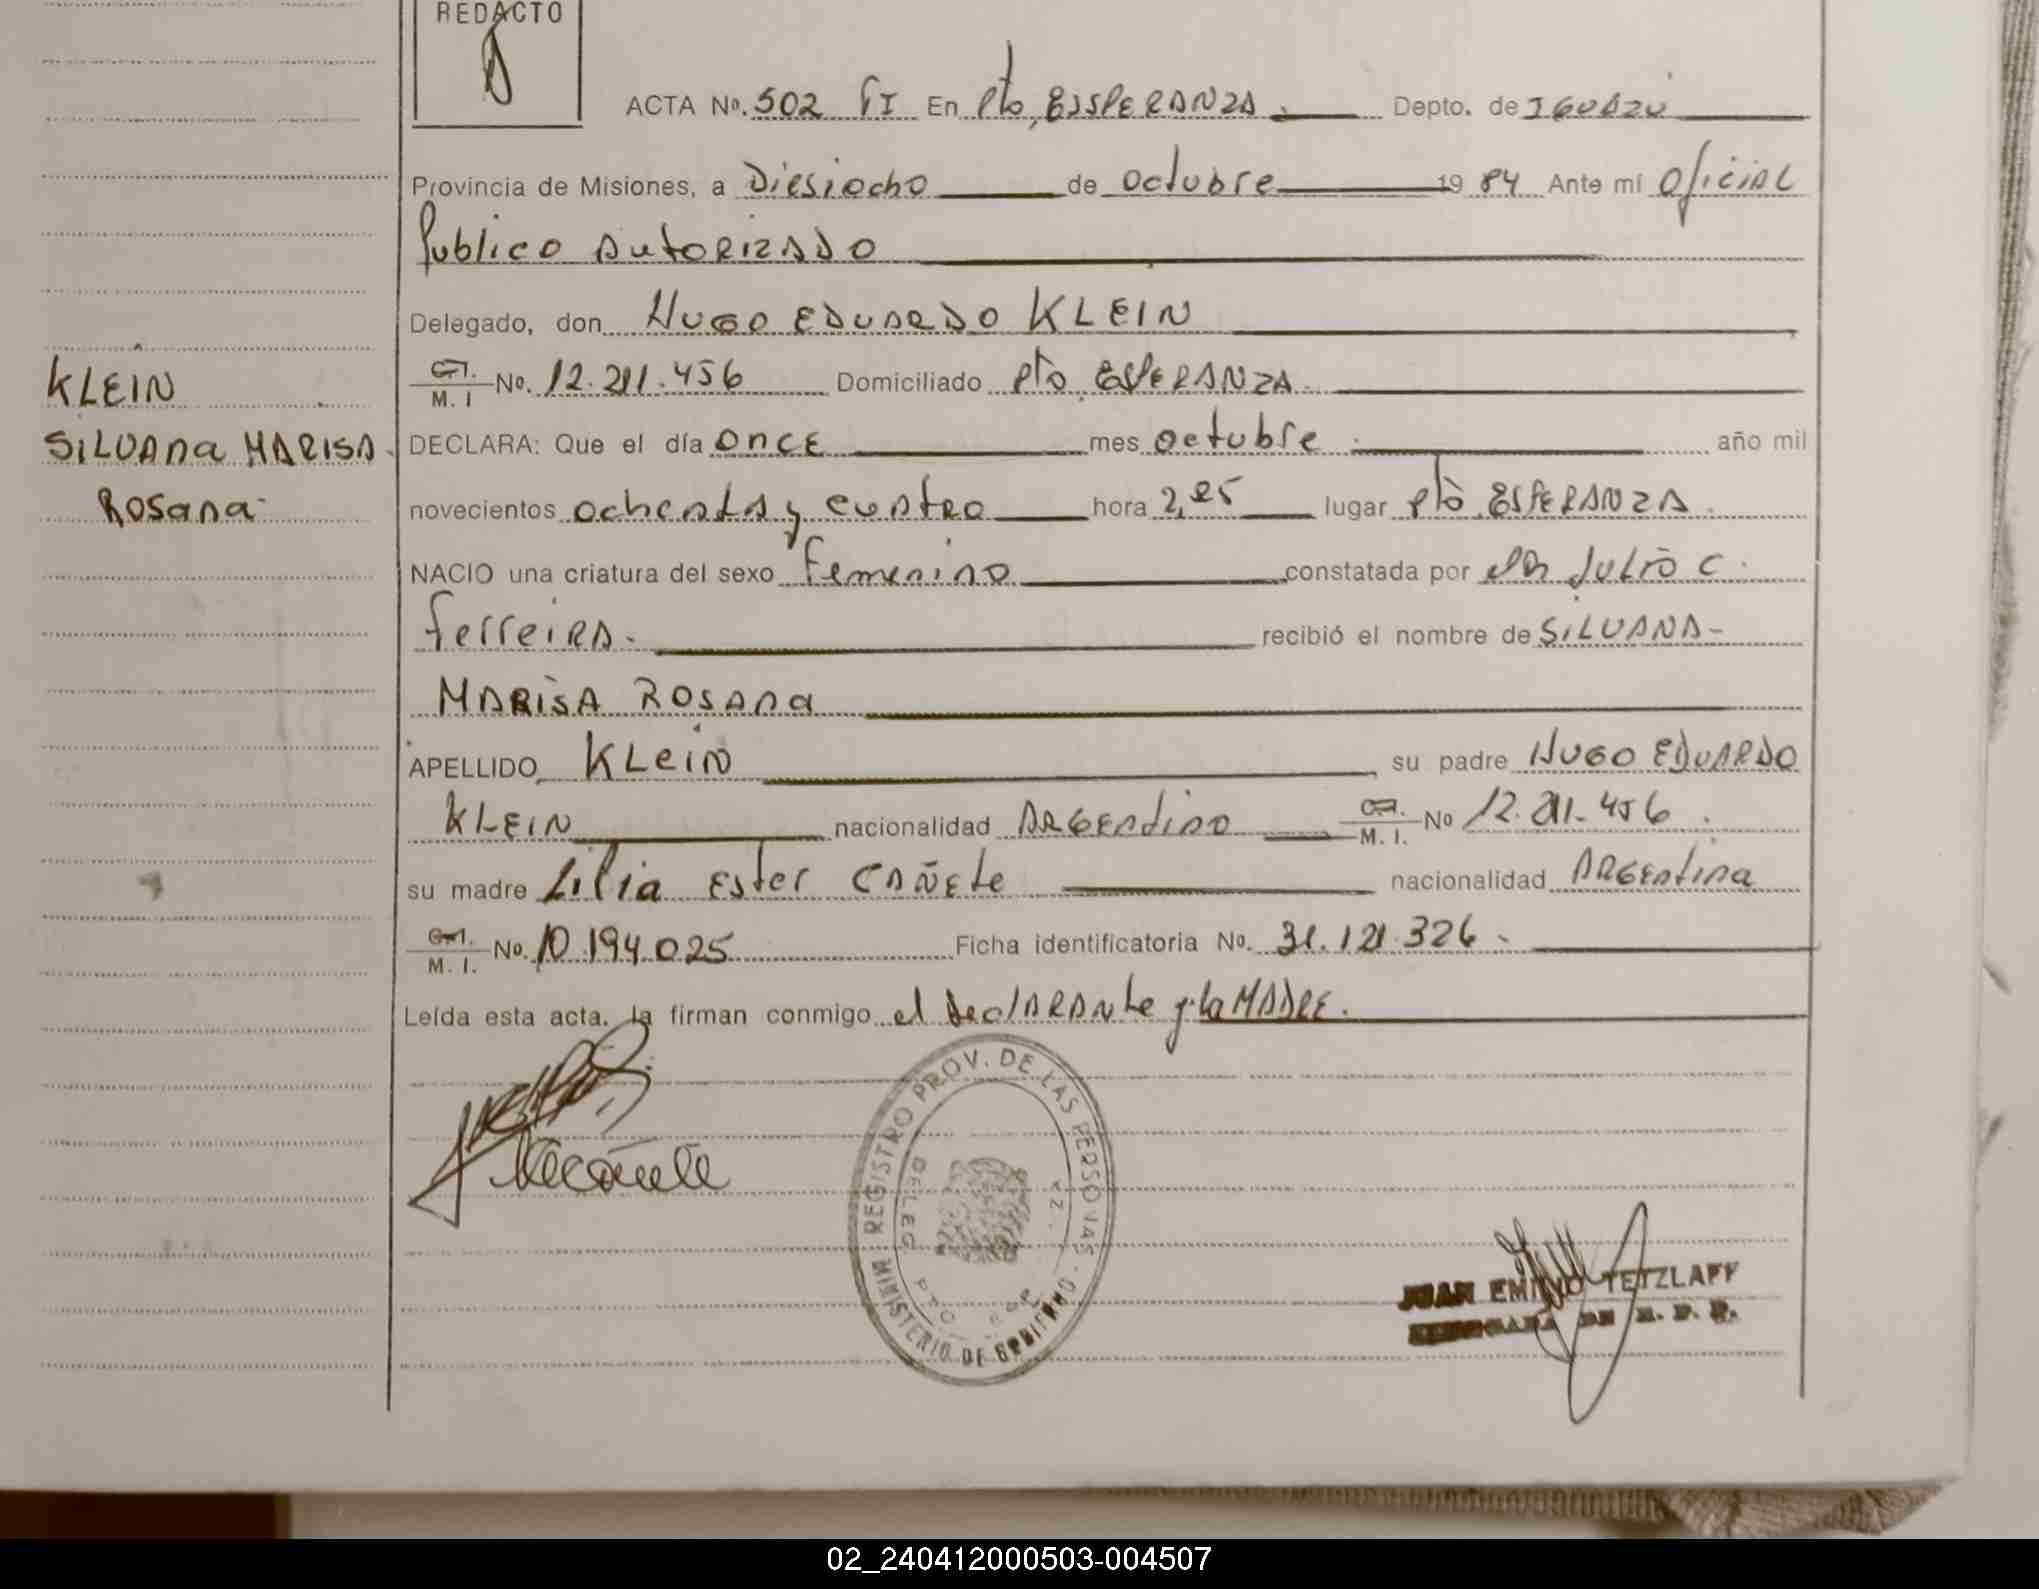 REDACTO
ACTA No. 502 TI En Pto, ESSPERANZA. Depto. de IGUAZU
Provincia de Misiones, a Diesiocho de octubre 19 84 Ante mí Oficial
Publico AutoRIZADO
Delegado, don HUGO EDUARDO KLEIN
C.I. M. I No. 12.211.456 Domiciliado Pto ESPERANZA
KLEIN
SILVANA MARISA
Rosana
DECLARA: Que el día once mes octubre año mil
novecientos ochenta y cuatro hora 2,25 lugar Pto ESPERANZA
NACIO una criatura del sexo femenino constatada por DR Julio C.
ferreira. recibió el nombre de SILVANA-
MARISA ROSANA
APELLIDO KLEIN su padre HUGO EDUARDO
KLEIN nacionalidad ARGENtino C.I. M. I. No 12.211.456
su madre Lilia Ester CAÑEte nacionalidad ARGENtina
C.I. M. I. No. 10.194.025 Ficha identificatoria No. 31.121.326
Leída esta acta. la firman conmigo el declARANte y la MADRE.
REGISTRO PROV. DE LAS PERSONAS
MINISTERIO DE GOBIERNO
DELEG. PTO.
JUAN EMILIO TETZLAFF
DE R. P. P.
02_240412000503-004507